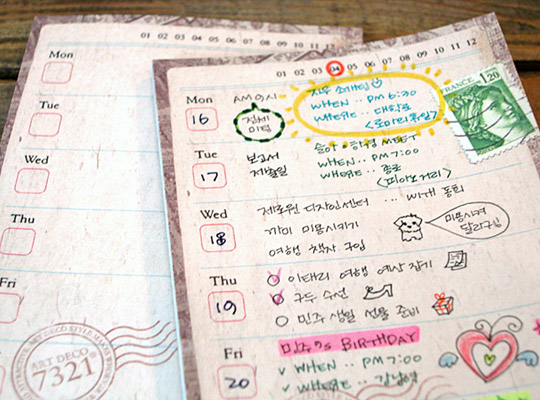 Mon
01 02 03 04 05 06 07 08 09 10 11 12
Tue
Wed
Thu
Fri
ART DECO
7321
01 02 03 04 05 06 07 08 09 10 11 12
Mon
16
AM 9시
전체
미팅
지우 소개팅
WHEN .. PM 6:30
WHERE .. 대학로
FRANCE
1,20
Tue
17
보고서
제출일
MEET
WHEN .. PM 7:00
WHERE .. 종로
<피아노거리>
Wed
18
제로원 디자인센터 ... with 동희
까미 미용시키기
여행 책자 구입
미용시켜
달라구!!
Thu
19
이태리 여행 예상 잡기
구두 수선
민주 생일 선물 준비
Fri
20
민주's BIRTHDAY
WHEN .. PM 7:00
WHERE .. 강남역
ART DECO
7321